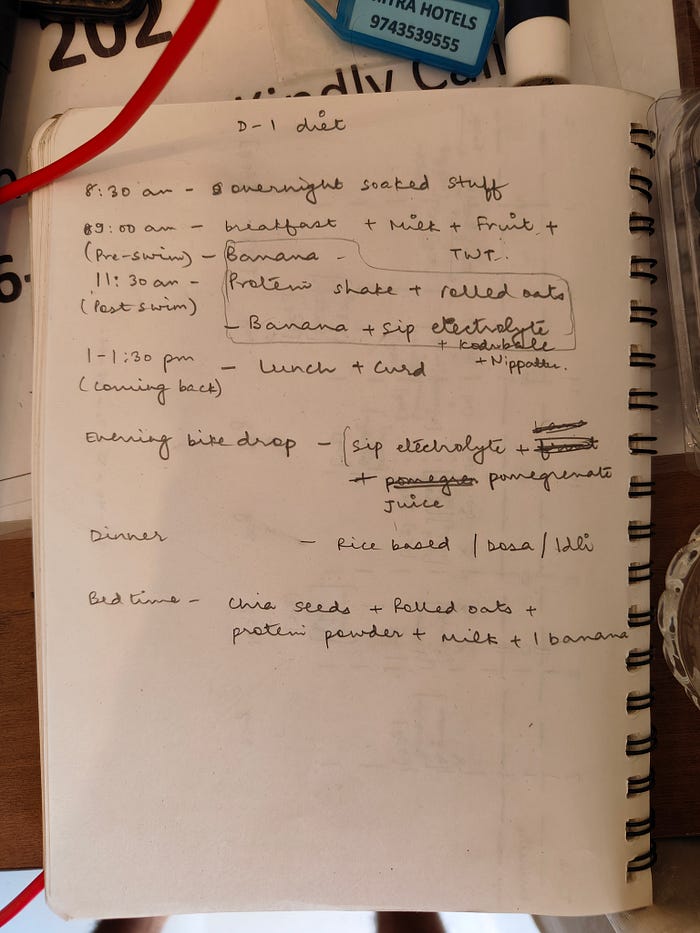 MITRA HOTELS
9743539555
202
Kindly Call
6-
D-1 diet
8:30 am - overnight soaked stuff
09:00 am - breakfast + Milk + Fruit +
TWT.
(Pre-swim) - Banana -
11:30 am - Protein shake + rolled oats
(Post swim)
- Banana + sip electrolyte
+ Kodubale
+ Nippattu.
1-1:30 pm - Lunch + Curd
(Coming back)
Evening bike drop - sip electrolyte +
+ pomegrenate
Juice
Dinner - Rice based / Dosa / Idli
Bedtime - Chia seeds + Rolled oats +
protein powder + Milk + 1 banana